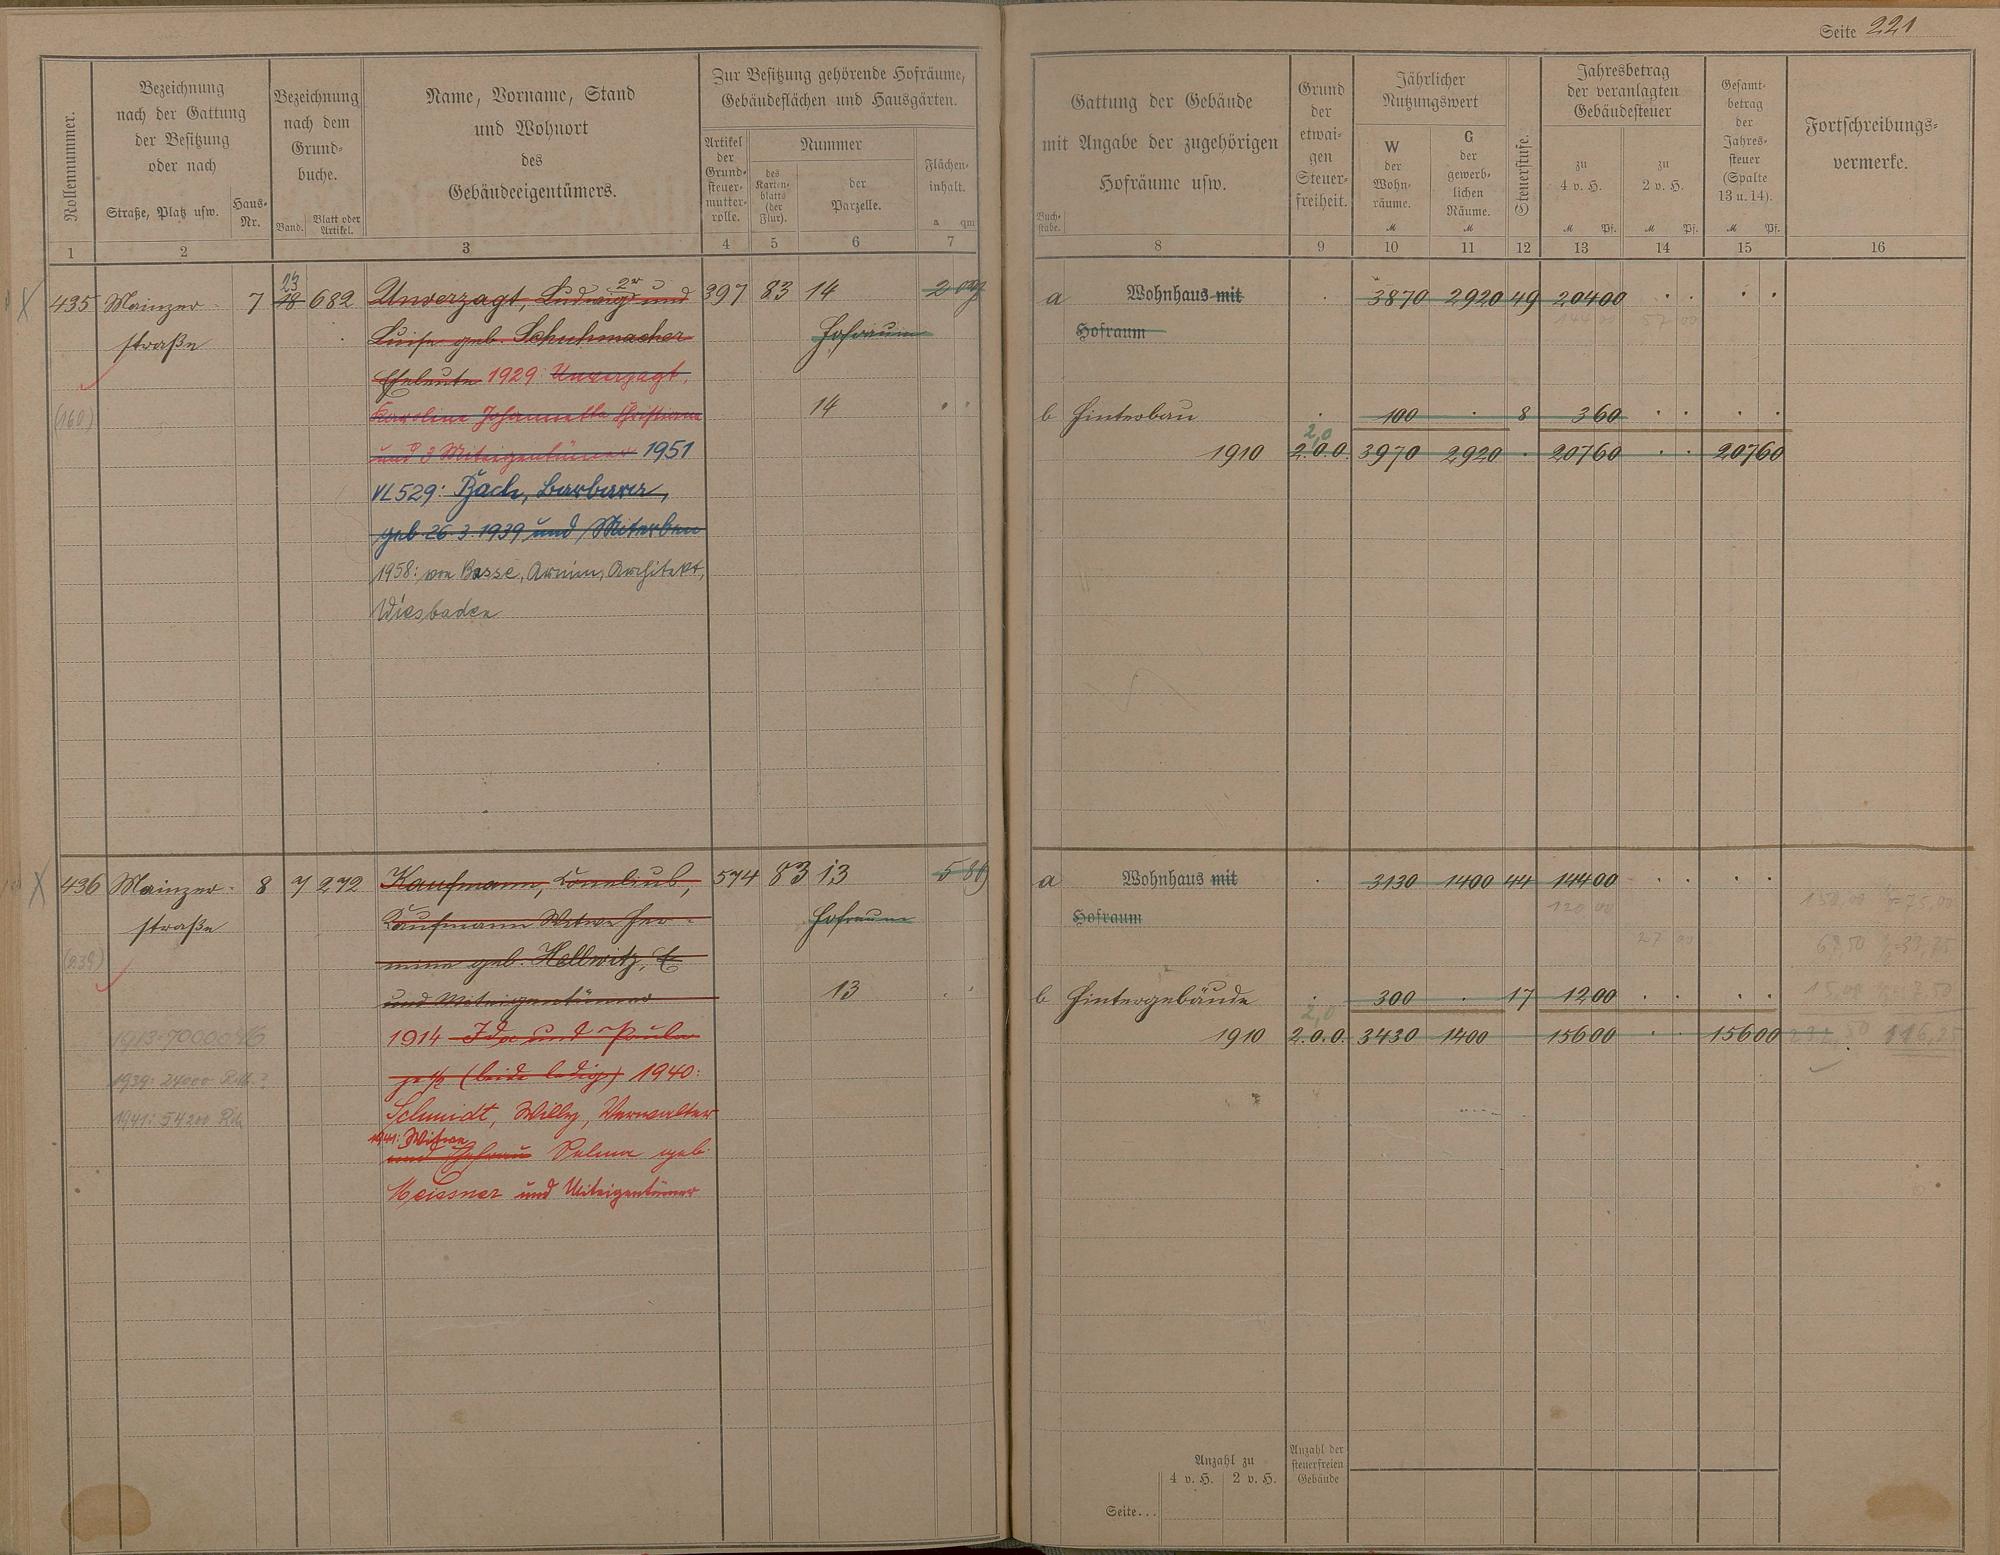 Seite 221
Rollennummer.
Bezeichnung
nach der Gattung
der Besitzung
oder nach
Straße, Platz usw.
Haus-
Nr.
Bezeichnung
nach dem
Grund-
buche.
Band.
Blatt oder
Artikel.
Name, Vorname, Stand
und Wohnort
des
Gebäudeeigentümers.
Zur Besitzung gehörende Hofräume,
Gebäudeflächen und Hausgärten.
Artikel
der
Grund-
steuer-
mutter-
rolle.
Nummer
des
Karten-
blatts
(der
Flur).
der
Parzelle.
Flächen-
inhalt.
a qm
1 2 3 4 5 6 7
Gattung der Gebäude
mit Angabe der zugehörigen
Hofräume usw.
Buch-
stabe.
Grund
der
etwai-
gen
Steuer-
freiheit.
Jährlicher
Nutzungswert
W
der
Wohn-
räume.
M
G
der
gewerb-
lichen
Räume.
M
Steuerstufe.
Jahresbetrag
der veranlagten
Gebäudesteuer
zu
4 v. H.
M Pf.
zu
2 v. H.
M Pf.
Gesamt-
betrag
der
Jahres-
steuer
(Spalte
13 u. 14).
M Pf.
Fortschreibungs-
vermerke.
8 9 10 11 12 13 14 15 16
23
435 Mainzer- 7 18 682 Unverzagt, Ludwig 2r und 397 83 14 2 09
straße Luise geb. Schuhmacher Hofraum
Eheleute 1929: Unverzagt,
(160) Karoline Johannette Christiane 14
und 3 Miteigentümer 1951
VL 529: Bach, Barbara,
geb. 26.3.1939 und Miterben
1958: von Basse, Armin, Architekt,
Wiesbaden
a Wohnhaus mit 3870 2920 49 204 00
144 00 57 00
Hofraum
b Hinterbau 100 8 3 60
2,0
1910 2.0.0. 3970 2920 207 60 207 60
436 Mainzer- 8 7 272 Kaufmann, Cornelius, 574 83 13 5 86
straße Kaufmann Witwe Her- Hofraum
(239) mine geb. Hellwitz,
und Miteigentümer 13
1913: 70000 M 1914 Ida und Paula
1939: 24000 (beide ledig) 1940:
1941: 54200 Schmidt, Willy, Verwalter
1941: Witwe
und Ehefrau Selma geb.
Meissner und Miteigentümer
a Wohnhaus mit 3130 1400 44 144 00
120 00 150,00 75,00
Hofraum
27 00 67,50 33,75
b Hintergebäude 300 17 12 00 15,00 7,50
2,0
1910 2.0.0. 3430 1400 156 00 156 00 232,50 116,25
Anzahl zu
4 v. H. 2 v. H.
Anzahl der
steuerfreien
Gebäude
Seite...